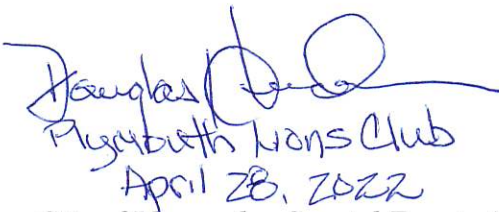 Douglas
Plymouth Lions Club
April 28, 2022